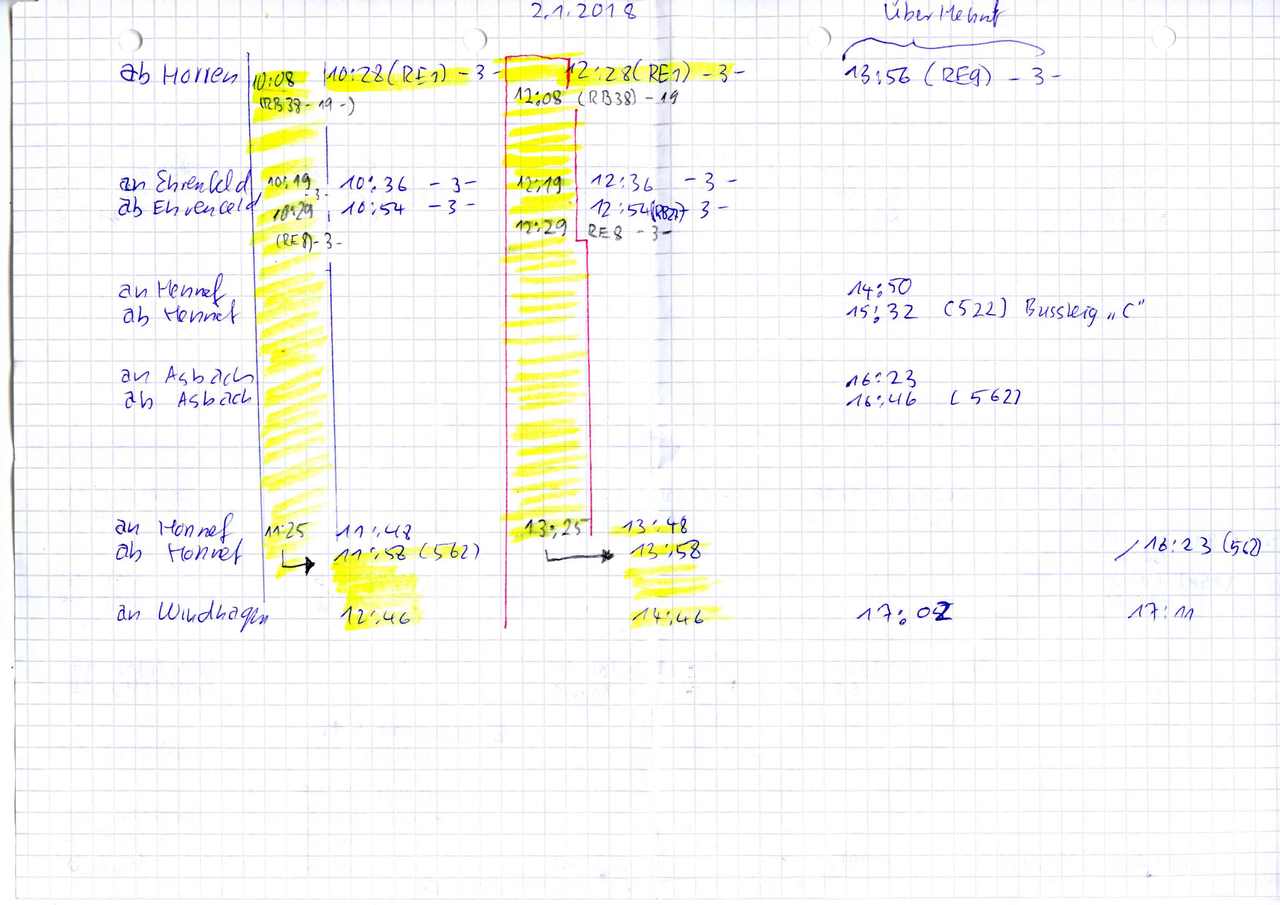 2.1.2018 Über Hennf
ab Horren 10:08 10:28 (RE1) - 3 - 12:28 (RE1) - 3 - 13:56 (RE9) - 3 -
(RB38 - 19 -) 12:08 (RB38) - 19
an Ehrenfeld 10:19 10:36 - 3 - 12:19 12:36 - 3 -
ab Ehrenfeld - 3 - 10:29 10:54 - 3 - 12:54 - 3 -
12:29 RE8 - 3 -
(RE8) - 3 -
an Hennef 14:50
ab Hennef 15:32 (522) Bussteig „C"
an Asbach 16:23
ab Asbach 16:46 (562)
an Honnef 11:25 11:48 13:25 13:48
ab Honnef 11:58 (562) 13:58 16:23 (562)
an Windhagen 12:46 14:46 17:02 17:11